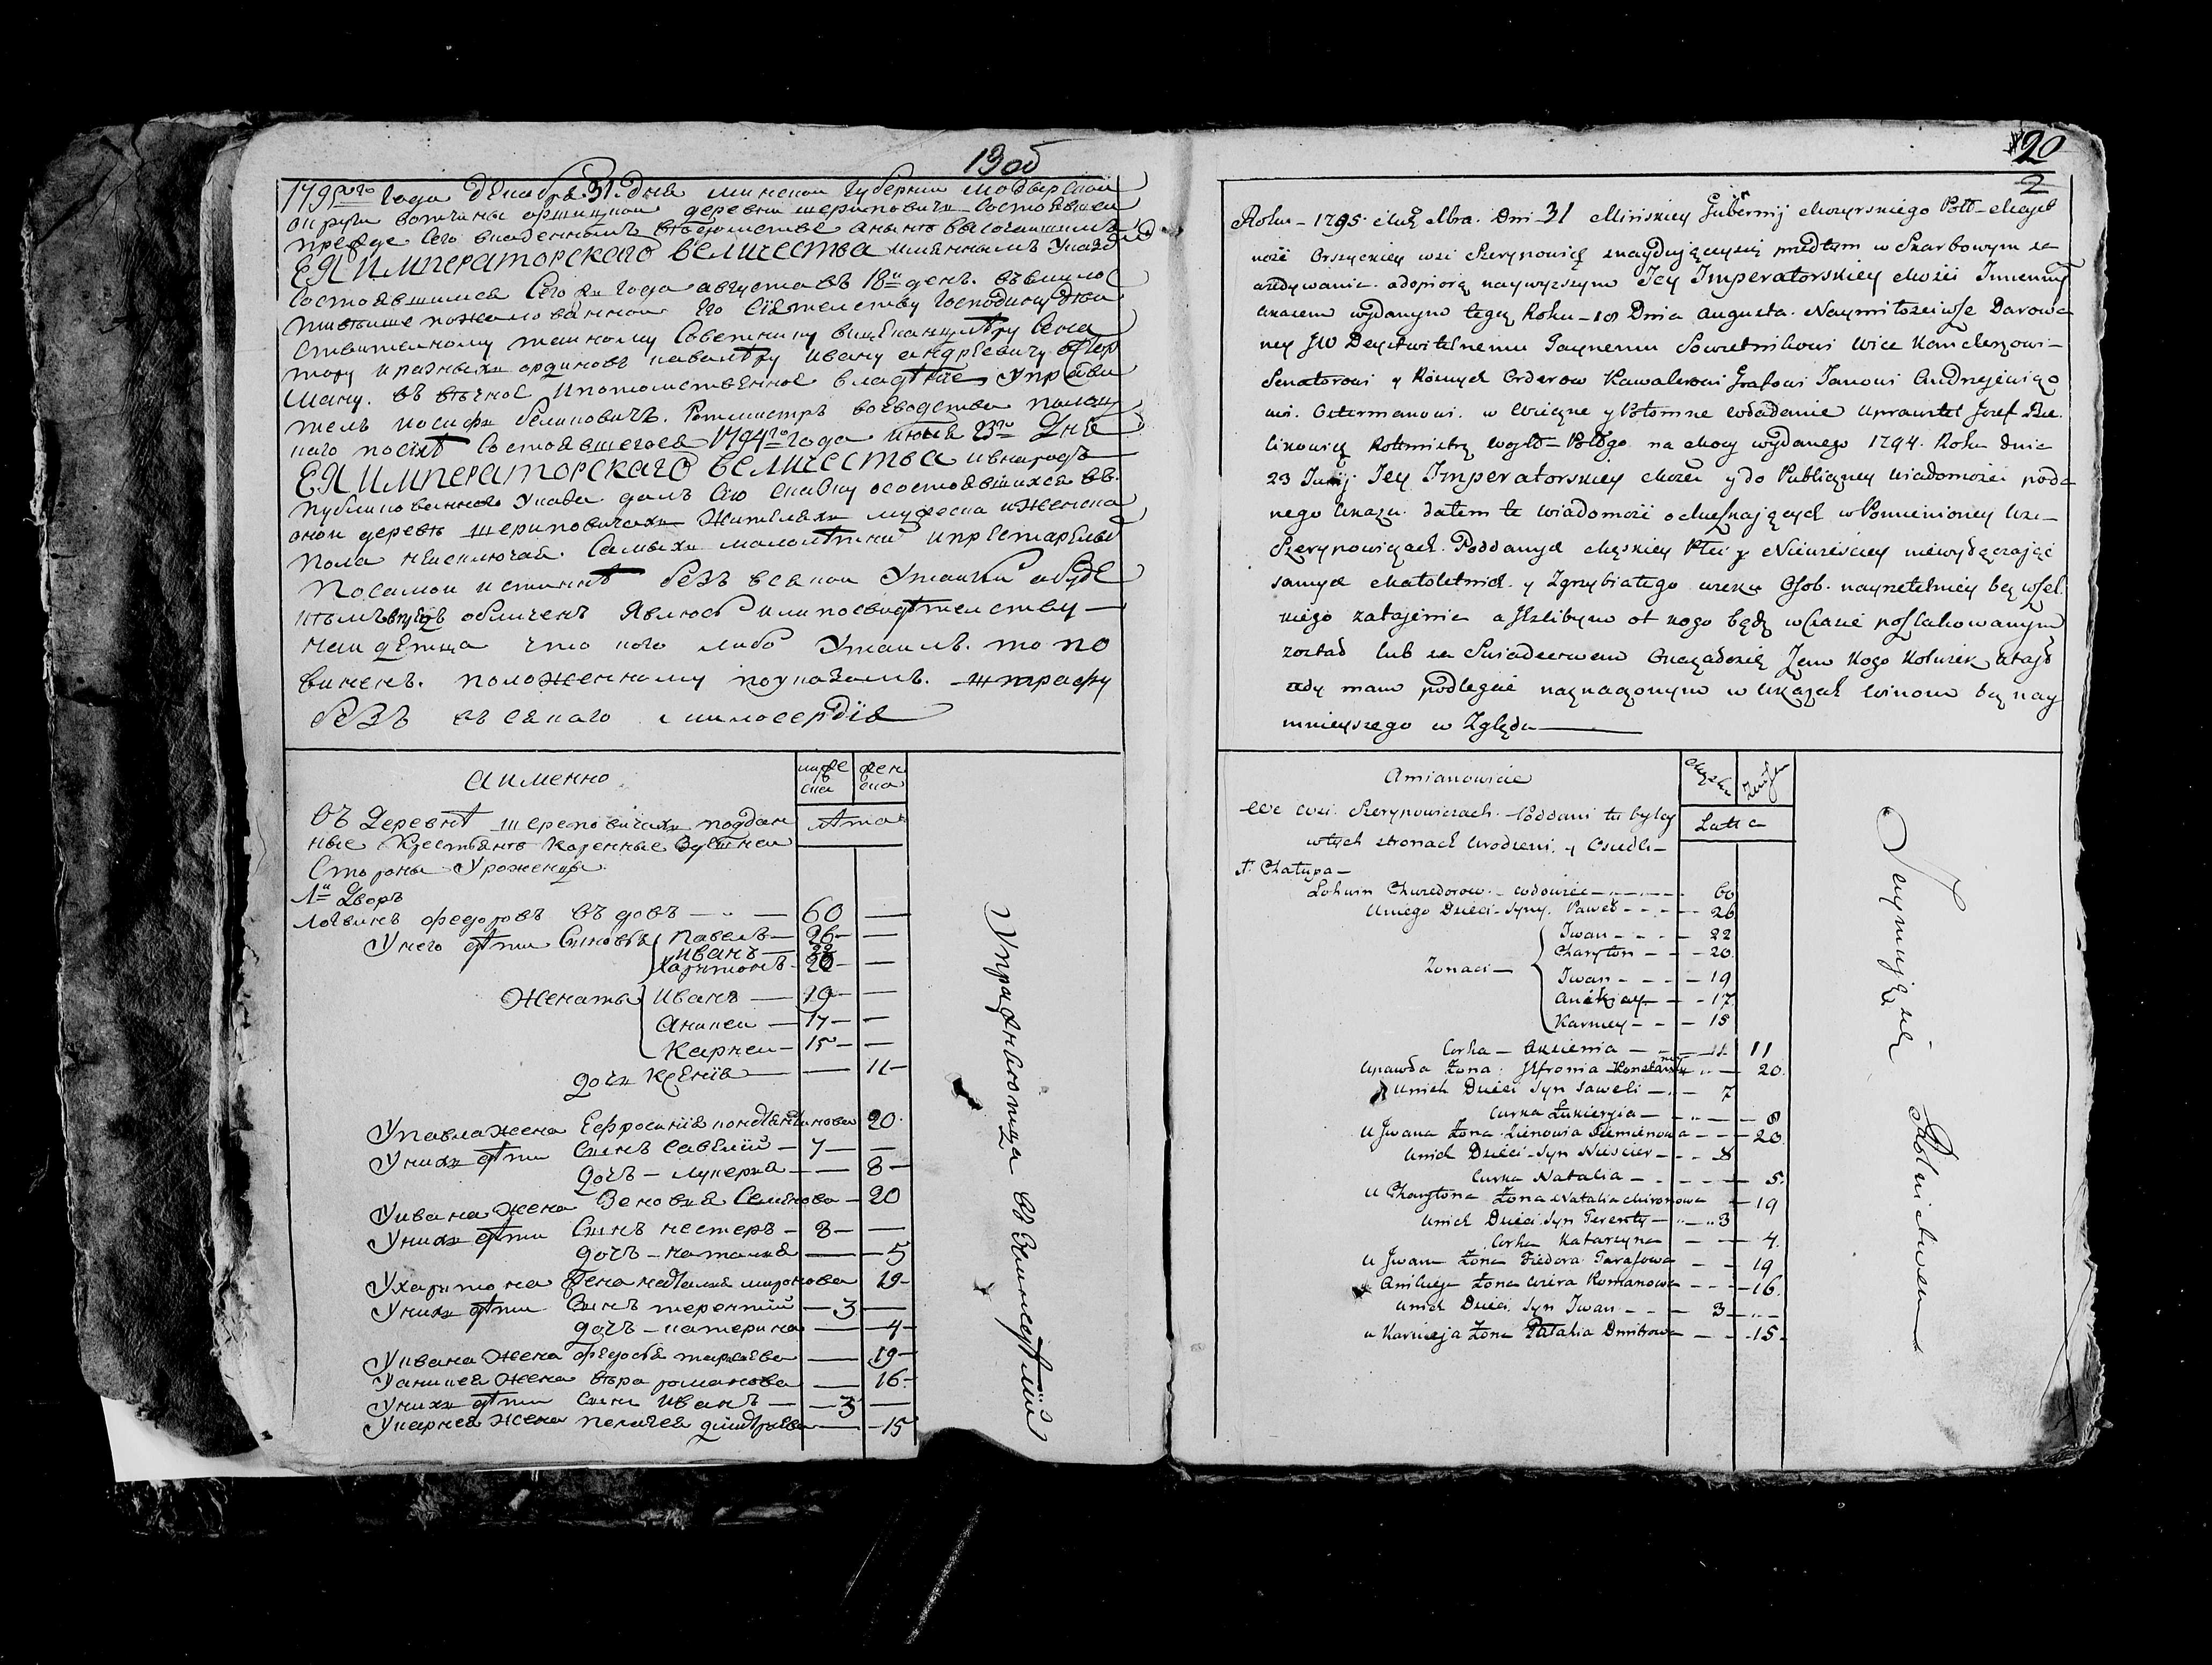 19об
1795го года декабря 31. дня минской губернии мозырской
округи вотчины оршицкой деревни шериповичи состоявшей
прежде сего в казенномъ ведомстве а нынѣ высочайшимъ
ЕЯ ИМПЕРАТОРСКАГО ВЕЛИЧЕСТВА имяннымъ указомъ
состоявшимся сего ж года августа въ 18й день. всемило
стивѣйше пожалованной его сіятелству господину дѣй
ствителному тайному советнику вицеканцлѣру сена
тору и разныхъ ординовъ кавалѣру ивану андрѣевичу остер
ману. въ вѣчное и потомственное владѣніе, управи
тель иосифъ белиновичъ. ротмистръ воеводства полоц
каго по силѣ состоявшегося 1794го года июня 23го дня
ЕЯ ИМПЕРАТОРСКАГО ВЕЛИЧЕСТВА и в народъ
публикованнаго указа далъ сию сказку о состоявшихся въ
оной деревѣ шериповичахъ жителяхъ мужеска и женска
пола неисключая. самыхъ малолѣтних и престарелых
по самой истиннѣ безъ всякой утайки а буде
кѣмъ впредь обличенъ явлюсь или по свидѣтелству
найдетца что кого либо утаилъ. то по
виненъ. положенному по указамъ. штрафу
безъ всякаго милосердія
а именно
муже
ска
жен
ска
въ деревнѣ шериповичахъ поддан
ные крестьянѣ коренные здешней
стороны уроженцы.
лѣта
1й дворъ
логвинъ федоровъ вдовъ — 60 —
у него дѣти сыновья павелъ — 26 —
иванъ — 22
харитонъ — 20 —
женаты иванъ — 19 —
аникей — 17 —
карней — 15 —
дочь ксенія — 11 —
у павла жена ефросинія константинова 20
у нихъ дѣти сынъ савелий — 7 —
дочь — лукерья — 8 —
у ивана жена зеновия семянова — 20
у нихъ дѣти сынъ нестеръ — 8 —
дочь — наталия — 5
у харитона жена наталия миронова 19
у нихъ дѣти сынъ терентий — 3 —
дочь — катерина — 4
у ивана жена федосья тарасова — 19
у аникея жена вѣра романова — 16
у нихъ дѣти сынъ иванъ — 3 —
у карнея жена пелагея дмитрѣева — 15
Упражняютца въ землѣдѣліи
20
2
Roku 1795 Mca Xbra. Dni 31 Mińskiey Gubernij Mozyrskiego Pttu Majęt
ności Orszyckiey wsi Szerypowicz znaydującyisię przedtym w Skarbowym za
wiedywaniu. a dopiorą naywyższym Jey Imperatorskiey Mości Imiennym
ukazem wydanym tegoż Roku 18 Dnia Augusta. Naymiłościwsze Darowa
ney JW Deystwitelnemu Taynemu Sowietnikowi Wice Kanclerzowi
Senatorowi y Rożnych Orderow Kawalerowi Grafowi Janowi Andrzejewiczo
wi. Ostermanowi. w Wieczne y Potomne Władanie Uprawitel Jozef Bie
linowicz Rotmistrz Wojtd Pottgo na Mocy wydanego 1794. Roku Dnia
23 Junij Jey Imperatorskiey Mości y do Publiczney Wiadomości poda
nego Ukazu. Datem te Wiadomość o mieszkających w Pomienioney Wsi
Szerypowiczach. Poddanych Męskiey Płci y Niewieściey niewyłączając
samych Małoletnich. y Zgrzybiałego wieku Osob. nayrzetelniey bez wszel
kiego zatajenia a Jeslibym ot kogo będz w czasie poszlakowanym
zostad lub za Swiadectwem Okazałosię Żem Kogo Kolwiek utaił
tedy mam podlegać naznaczonym w Ukazach Winom bez nay
mnieyszego w Zględu
Amianowicie
Męzka
Żeńska
We Wsi Szerypowiczach. Poddani tu byłcy
w tych stronach Urodzeni. y Osiedli
Latta
1. Chatupa
Lohwin Chwedorow. Wdowiec — 60
U niego Dzieci Syny. Paweł — 26
Iwan — 22
Charyton — 20
Zonaci — Iwan — 19
Anikiay — 17
Karniey — 15
Corka — Aksienia — 11
U Pawła Żona. Jefronia Konstantynowa — 20
U nich Dzieci Syn Saweli — 7
Curka Łukieryia — 8
U Jwana Żona Zienowia Siemienowa — 20
U nich Dzieci Syn Niescier — 8
Curka Natalia — 5
U Charytona Żona Natalia Mironowa — 19
U nich Dzieci Syn Terenty — 3
Corka Katarzyna — 4
U Jwana Żona Fiedora Tarasowa — 19
U Anikieja Żona Wiera Romanowa — 16
U nich Dzieci Syn Jwan — 3
U Karnieja Żona Pałahia Dmitrowa — 15
Zaymujące się Rolnictwem